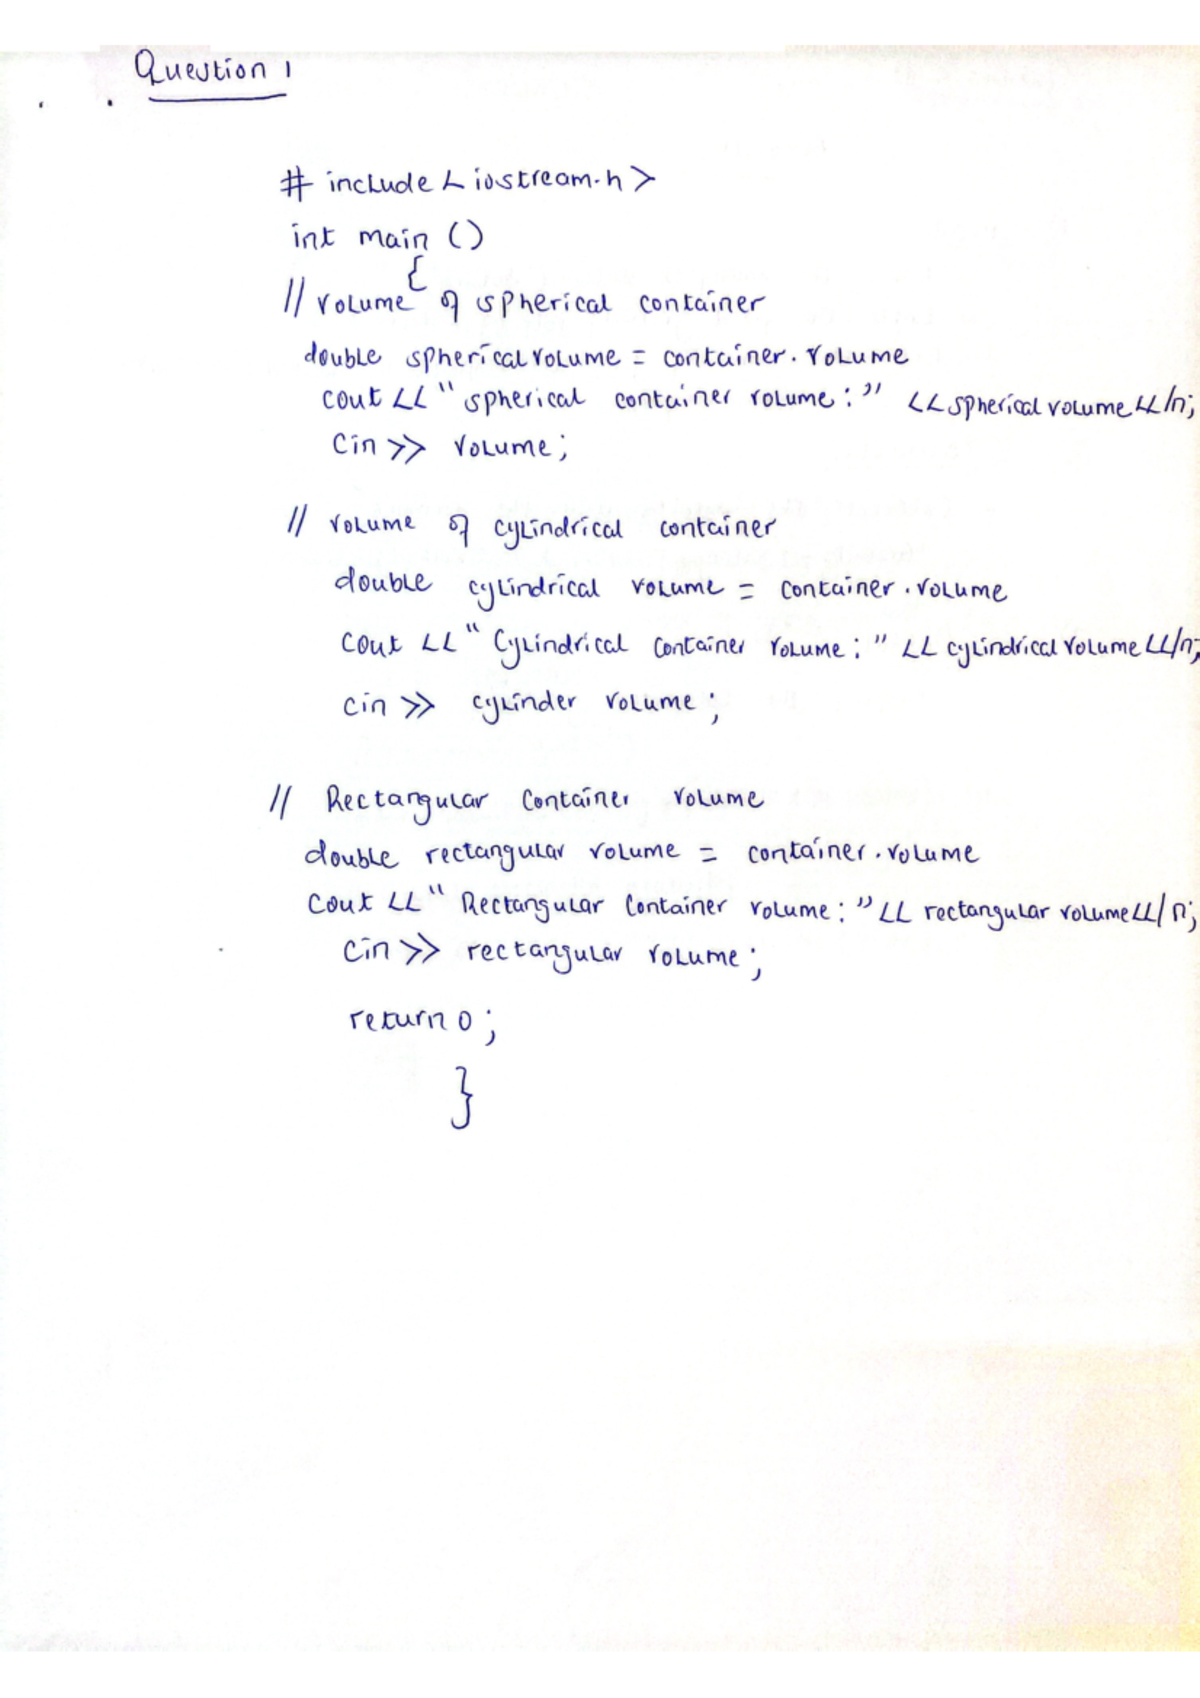 Question 1
# include < iostream.h >
int main ()
{
// volume of spherical container
double spherical volume = container. volume
cout << " spherical container volume : " << spherical volume << /n;
Cin >> volume ;
// volume of cylindrical container
double cylindrical volume = container . volume
cout << " Cylindrical container volume : " << cylindrical volume << /n;
cin >> cylinder volume ;
// Rectangular container volume
double rectangular volume = container . volume
cout << " Rectangular container volume : " << rectangular volume << /n;
Cin >> rectangular volume ;
return 0 ;
}